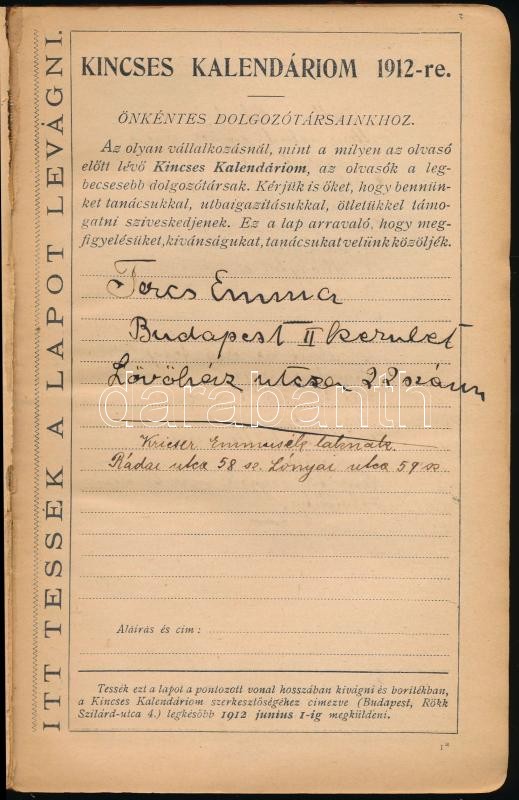 ITT TESSÉK A LAPOT LEVÁGNI.
KINCSES KALENDÁRIOM 1912-re.
ÖNKÉNTES DOLGOZÓTÁRSAINKHOZ.
Az olyan vállalkozásnál, mint a milyen az olvasó
előtt lévő Kincses Kalendáriom, az olvasók a leg-
becsesebb dolgozótársak. Kérjük is őket, hogy bennün-
ket tanácsukkal, utbaigazitásukkal, ötletükkel támo-
gatni sziveskedjenek. Ez a lap arravaló, hogy meg-
figyelésüket, kivánságukat, tanácsukat velünk közöljék.
Emma
Budapest II kerulet
Lövőház utcza 22 szám
darabanth
Rádai utca 58 sz. Lónyai utca 59 sz
Aláirás és cim:
Tessék ezt a lapot a pontozott vonal hosszában kivágni és boritékban,
a Kincses Kalendáriom szerkesztőségéhez cimezve (Budapest, Rökk
Szilárd-utca 4.) legkésőbb 1912 junius 1-ig megküldeni.
1*